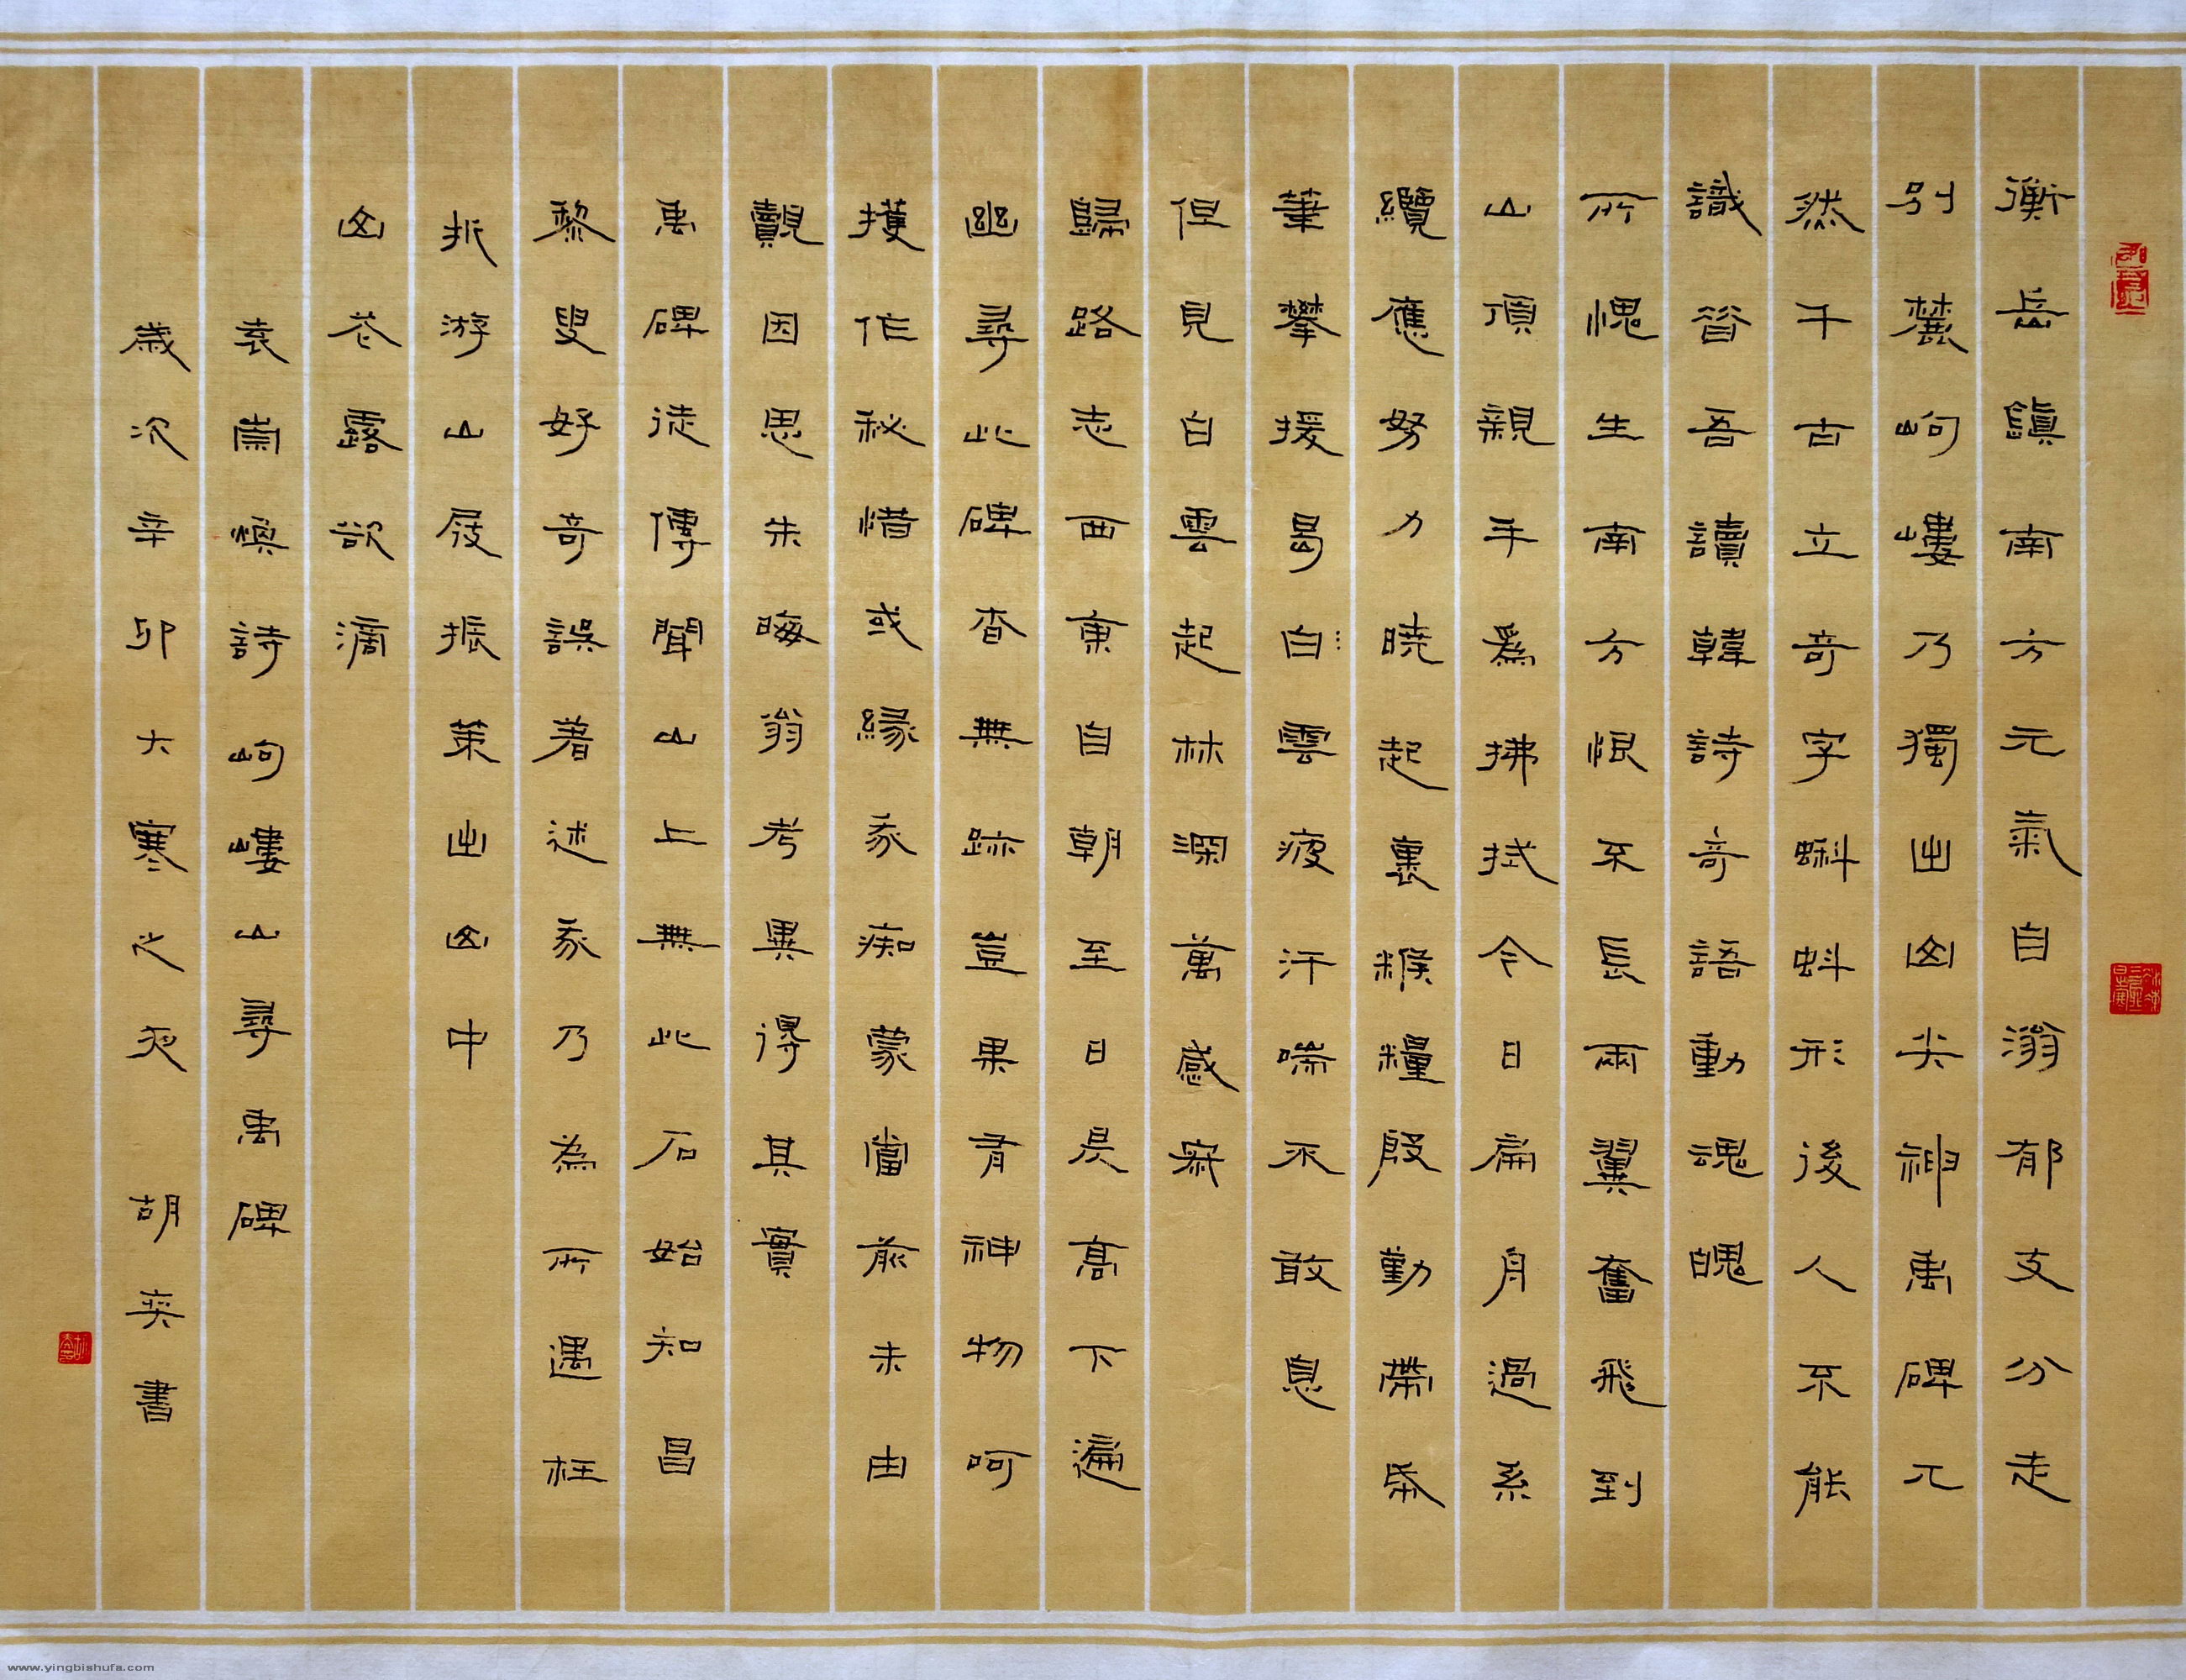 衡岳鎮南方元氣自滃郁支分走
別麓岣嶁乃獨出凶尖神禹碑兀
然千古立奇字蝌蚪形後人不能
識昔吾讀韓詩奇語動魂魄
所愧生南方恨不長兩翼奮飛到
山頂親手為拂拭今日扁舟過系
纜應努力曉起裹糇糧殷勤帶紙
筆攀援曷白雲疲汗喘不敢息
但見白雲起林深萬感寂
歸路志西東自朝至日昃高下遍
幽尋此碑杳無跡豈果有神物呵
擭作秘惜或緣我痴蒙當前未由
覿因思朱晦翁考異得其實
禹碑徒傳聞山上無此石始知昌
黎叟好奇誤著述我乃為所遇枉
折游山屐振策出凶中
凶花露欲滴
袁崇煥詩岣嶁山尋禹碑
歲次辛卯大寒之夜 胡奕書
www.yingbishufa.com